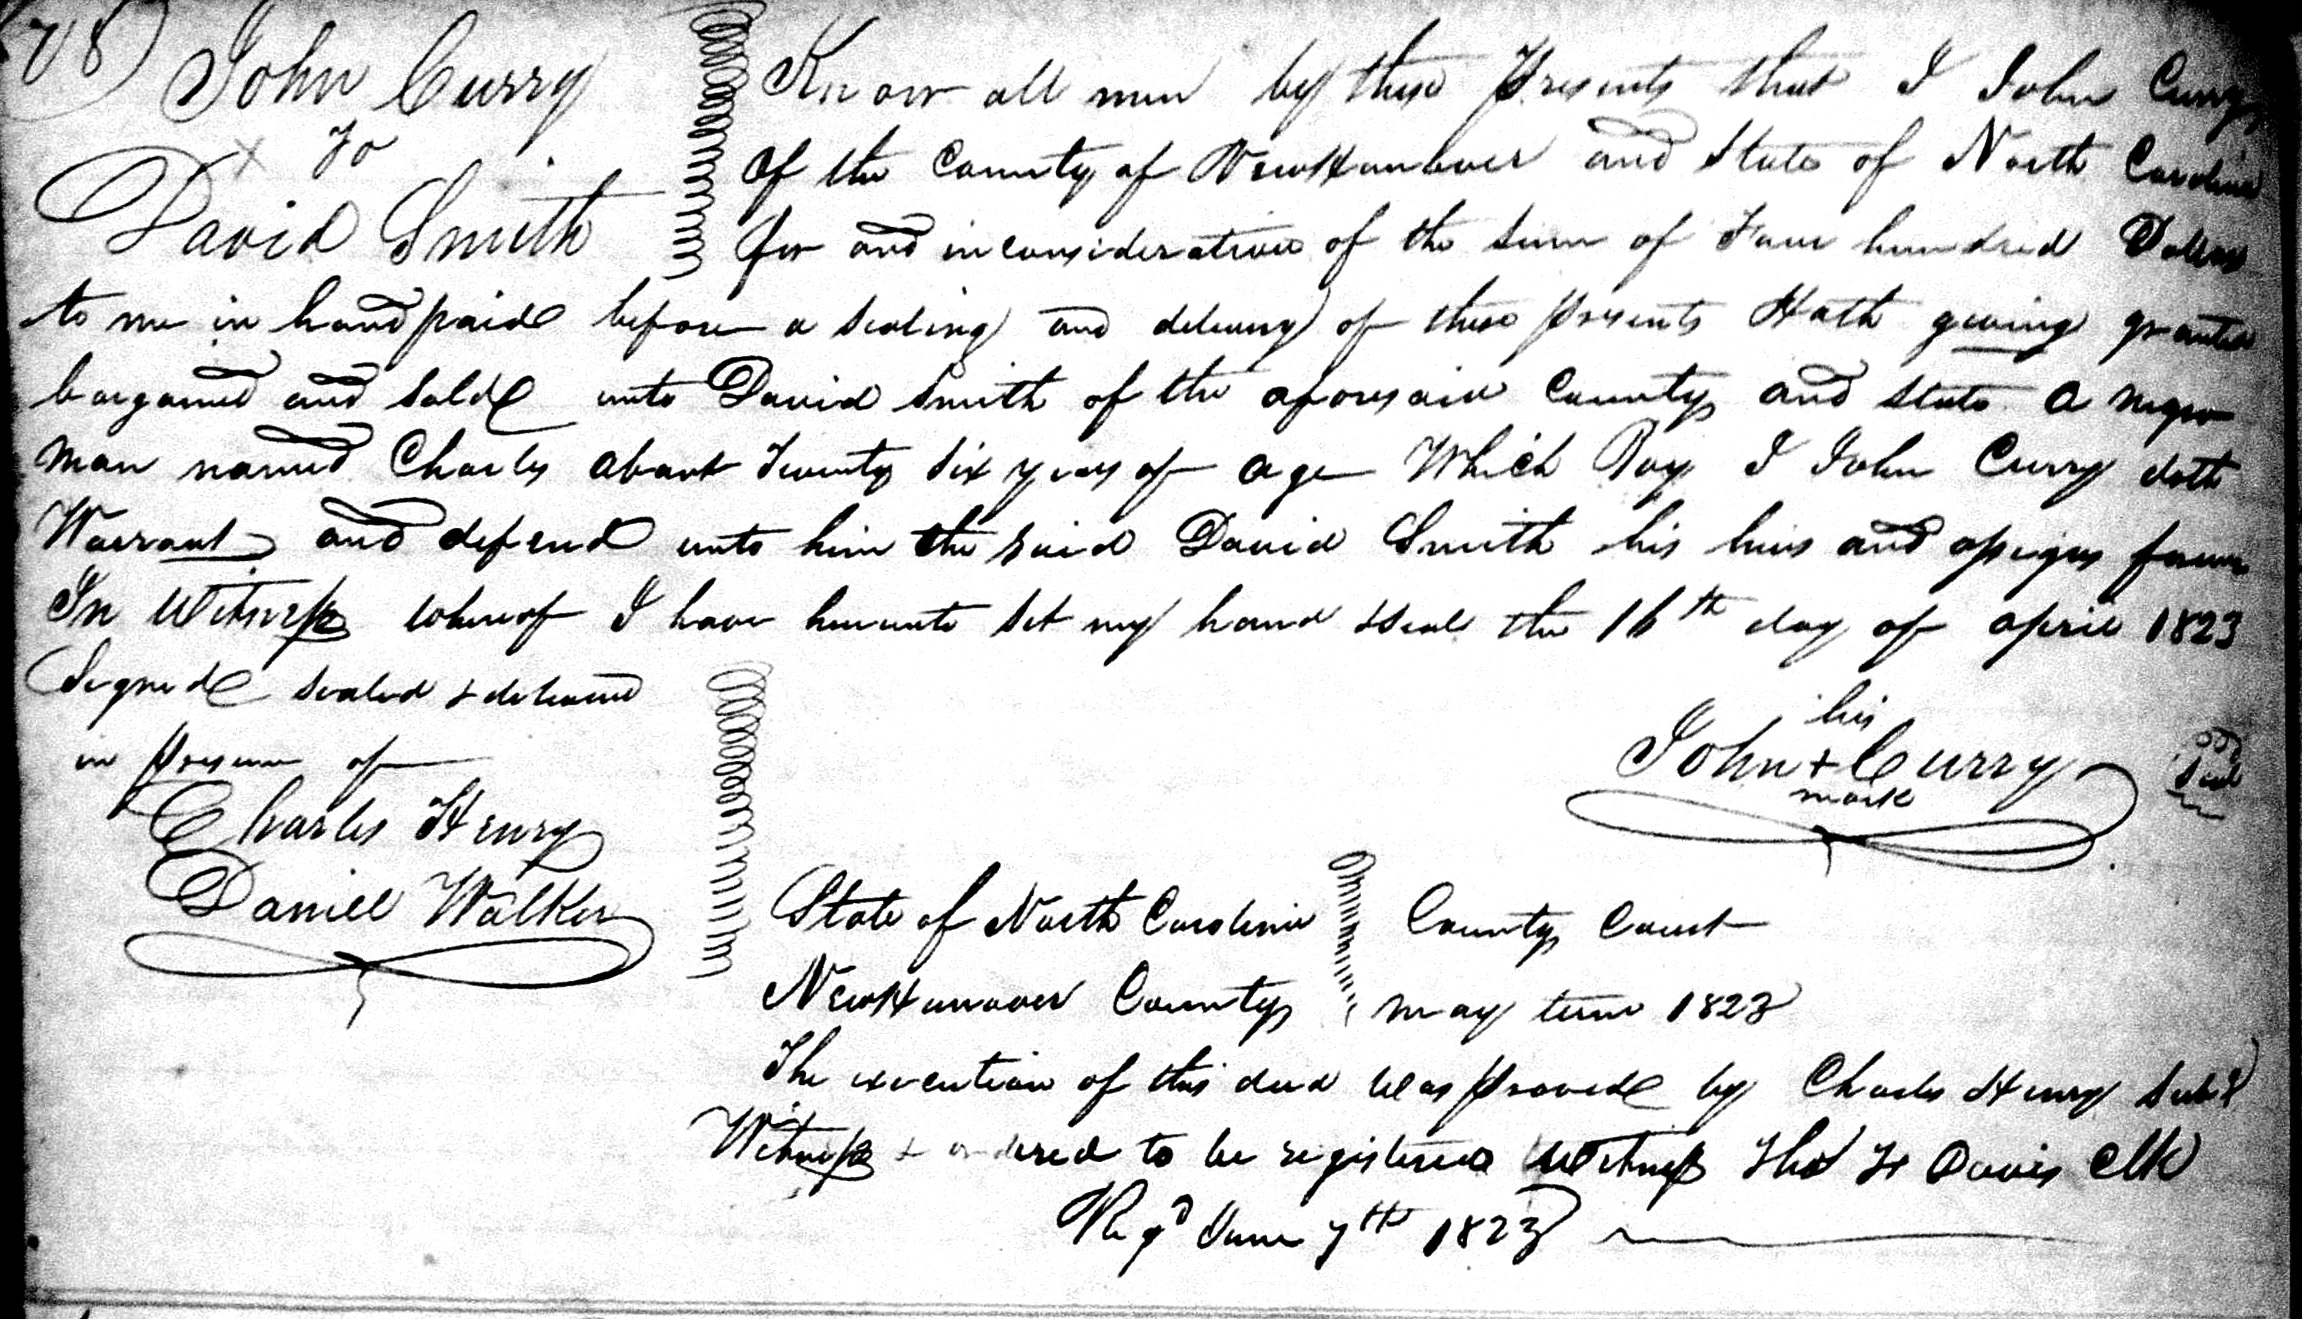 78)
John Curry
to
David Smith
Know all men by these Presents that I John Curry
of the County of NewHanover and State of North Carolina
for and in consideration of the sum of Four hundred Dollars
to me in hand paid before a sealing and delivery of these presents Hath giving granted
bargained and sold unto David Smith of the aforesaid County and State a negro
man named Charles about Twenty Six years of age Which Boy I John Curry doth
Warrant and defend unto him the said David Smith his heirs and assigns forever
In Witness whereof I have hereunto set my hand & seal the 16th day of april 1823
Signed sealed & delivered
in presence of
his
John + Curry
mark
Seal
Charles Henry
Daniel Walker
State of North Carolina County Court
NewHanover County May term 1823
The execution of this deed was proved by Charles Henry Subg
Witness & ordered to be registered Witness Thos F Davis Clk
Regd June 7th 1823